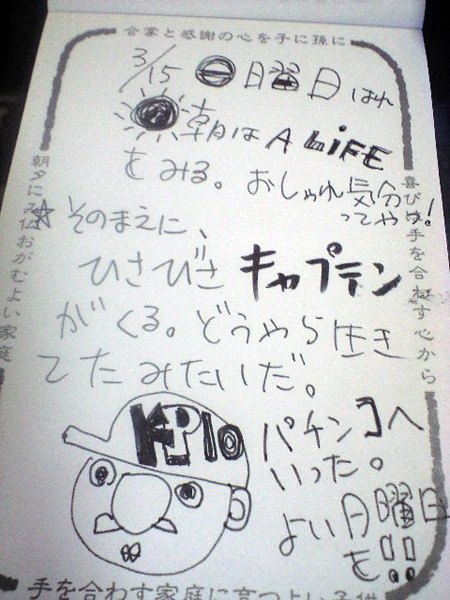 合掌と感謝の心を子に孫に
3/15 日曜日 はれ
朝は A LiFE
をみる。おしゃれ気分
ってやつ!
☆そのまえに、
ひさびさ キャプテン
がくる。どうやら生き
てたみたいだ。
パチンコへ
いった。
よい日曜日
を!!
喜びは手を合わす心から
朝夕にみ仏おがむよい家庭
手を合わす家庭に育つよい子供